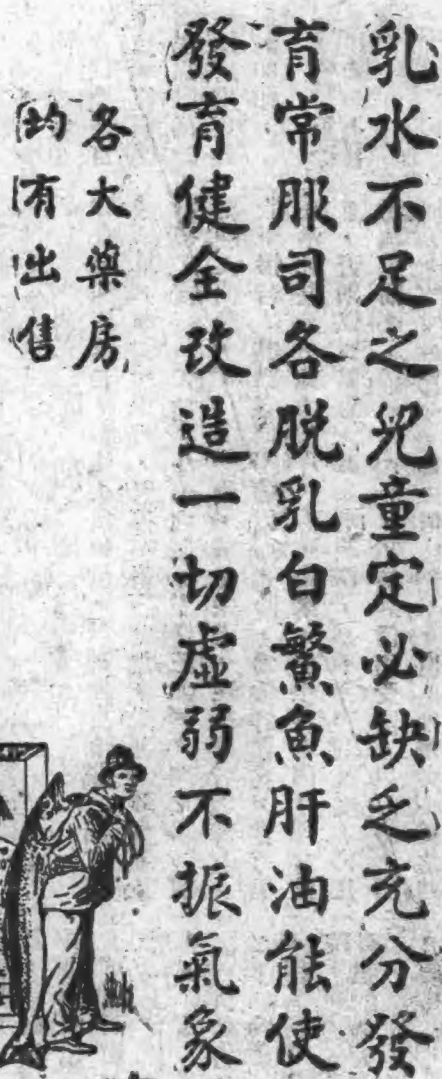 乳水不足之兒童定必缺乏充分發
育常服司各脫乳白鰵魚肝油能使
發育健全改造一切虛弱不振氣象
各大藥房
均有出售